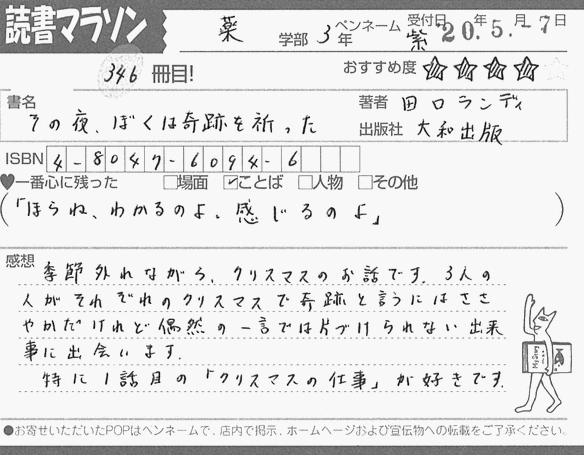 読書マラソン
薬 学部 3年 ペンネーム 紫 受付日 '20年 5.月-7日
346 冊目! おすすめ度 ★★★★☆
書名 その夜、ぼくは奇跡を祈った
著者 田口ランディ
出版社 大和出版
ISBN 4-8047-6094-6
♥一番心に残った □場面 ☑ことば □人物 □その他
(「ほらね、わかるのよ、感じるのよ」)
感想 季節外れながら、クリスマスのお話です. 3人の
人がそれぞれのクリスマスで奇跡と言うにはささ
やかだけれど偶然の一言では片づけられない出来
事に出会います.
特に1話目の「クリスマスの仕事」が好きです.
●お寄せいただいたPOPはペンネームで、店内で掲示、ホームページおよび宣伝物への転載をご了承ください。